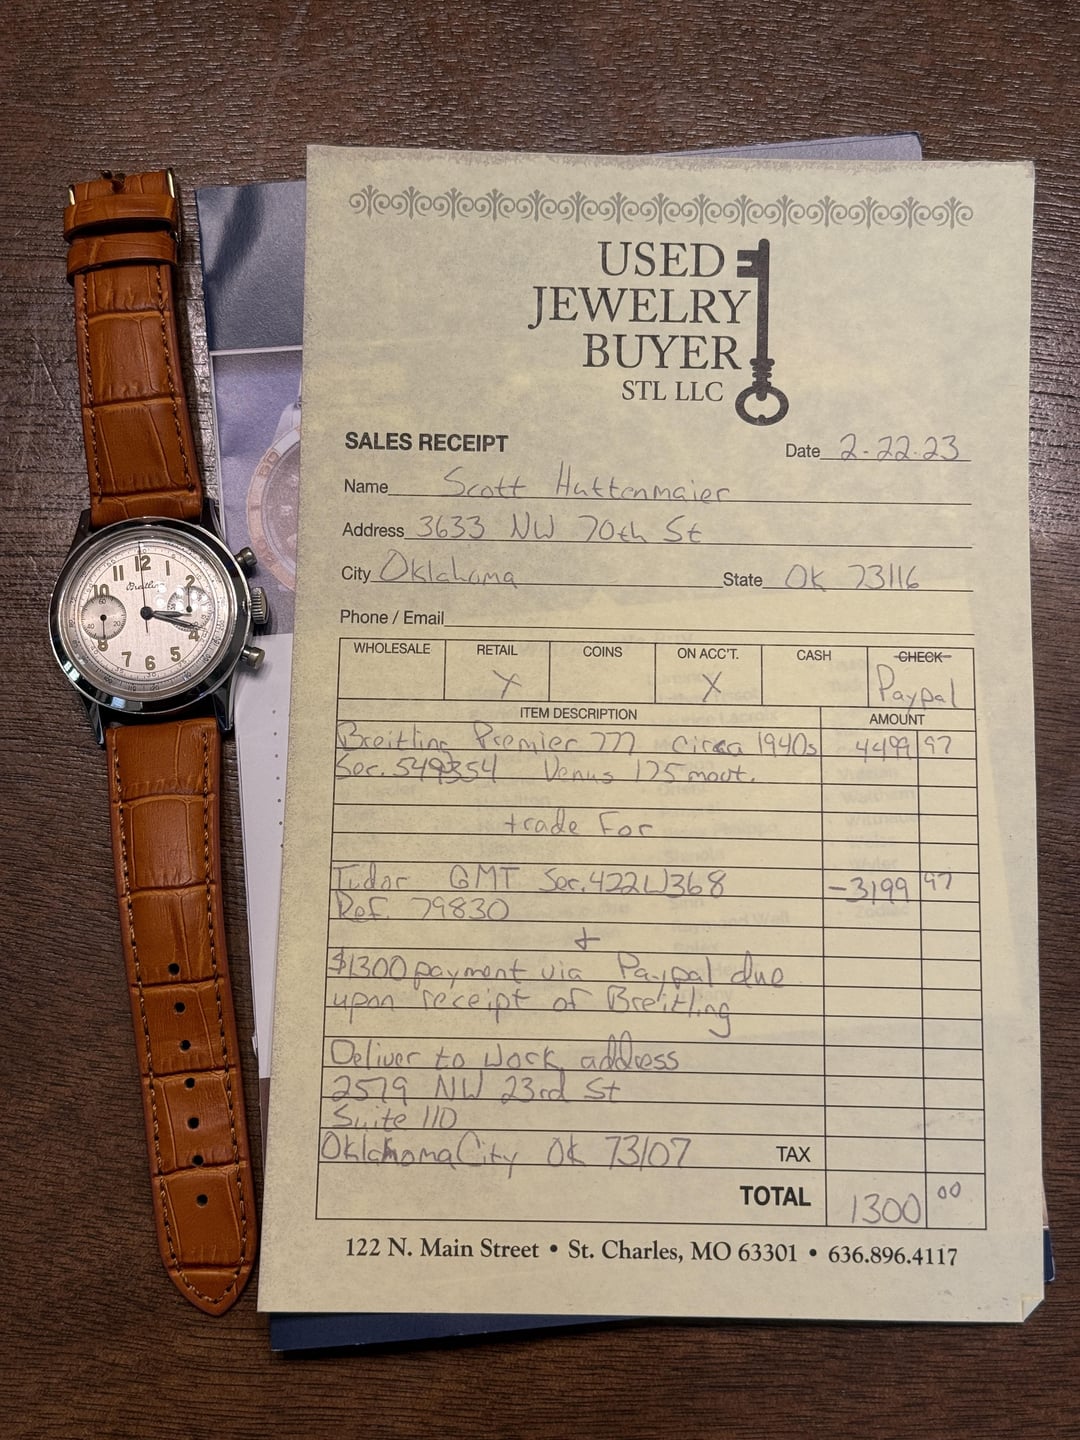 USED
JEWELRY
BUYER
STL LLC
SALES RECEIPT
Date 2-22-23
Name Scott Huttenmaier
Address 3633 NW 70th St
City Oklahoma State OK 73116
Phone / Email
WHOLESALE RETAIL COINS ON ACC'T. CASH CHECK
X X Paypal
ITEM DESCRIPTION AMOUNT
Breitling Premier 777 circa 1940s 4499 97
Ser. 549354 Venus 175 movt.
trade for
Tudor GMT Ser. 422W368 -3199 97
Ref. 79830
+
$1300 payment via Paypal due
upon receipt of Breitling
Deliver to work address
2519 NW 23rd St
Suite 110
Oklahoma City OK 73107 TAX
TOTAL 1300 00
122 N. Main Street • St. Charles, MO 63301 • 636.896.4117
Breitling
12
1
2
4
5
6
7
8
10
11